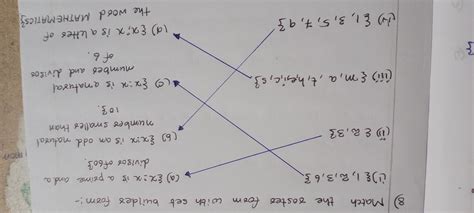 8) Match the roster form with set builder form:-
i) {1, 2, 3, 6}
(a) {x: x is a prime and a
divisor of 6}
(ii) {2, 3}
(b) {x:x is an odd natural
number smaller than
10}
(iii) {m, a, t, h, e, i, c, s}
(c) {x: x is a natural
numbers and divisor
of 6
(iv) {1, 3, 5, 7, 9}
(d) {x: x is a letter of
the word MATHEMATICS}